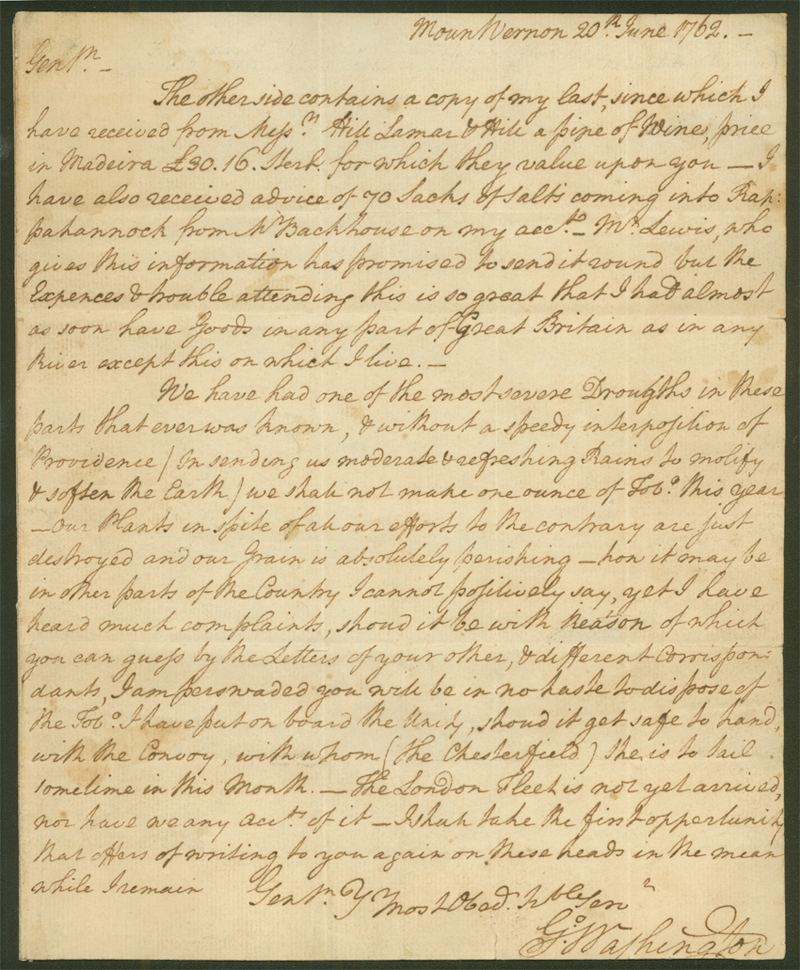 Mount Vernon 20th June 1762. —
Gentn —
The other side contains a copy of my last, since which I
have received from Messrs Hill Lamar & Hill a pipe of Wines, price
in Madeira £30.16. Sterl. for which they value upon you — I
have also received advice of 70 Sacks of Salts coming into Rap:
pahannock from Mr Backhouse on my acct. — Mr Lewis, who
gives this information has promised to send it round but the
Expences & trouble attending this is so great that I had almost
as soon have Goods in any part of Great Britain as in any
River except this on which I live. —
We have had one of the most severe Droughts in these
parts that ever was known, & without a speedy interposition of
Providence (in sending us moderate & refreshing Rains to molify
& soften the Earth) we shall not make one ounce of Tobo. this year
— Our Plants in spite of all our efforts to the contrary are just
destroyed and our Grain is absolutely perishing — how it may be
in other parts of the Country I cannot positively say, yet I have
heard much complaints, shoud it be with Reason of which
you can guess by the Letters of your other, & different Corrispon:
dants, I am perswaded you will be in no haste to dispose of
the Tobo. I have put on board the Unity, shoud it get safe to hand,
with the Convoy, with whom (the Chesterfield) She is to Sail
sometime in this Month. — The London Fleet is not yet arrived,
nor have we any acct. of it — I shall take the first oppertunity
that offers of writing to you again on these heads in the mean
while I remain Gentn Yr Most Obed. Hble Servt
Go. Washington